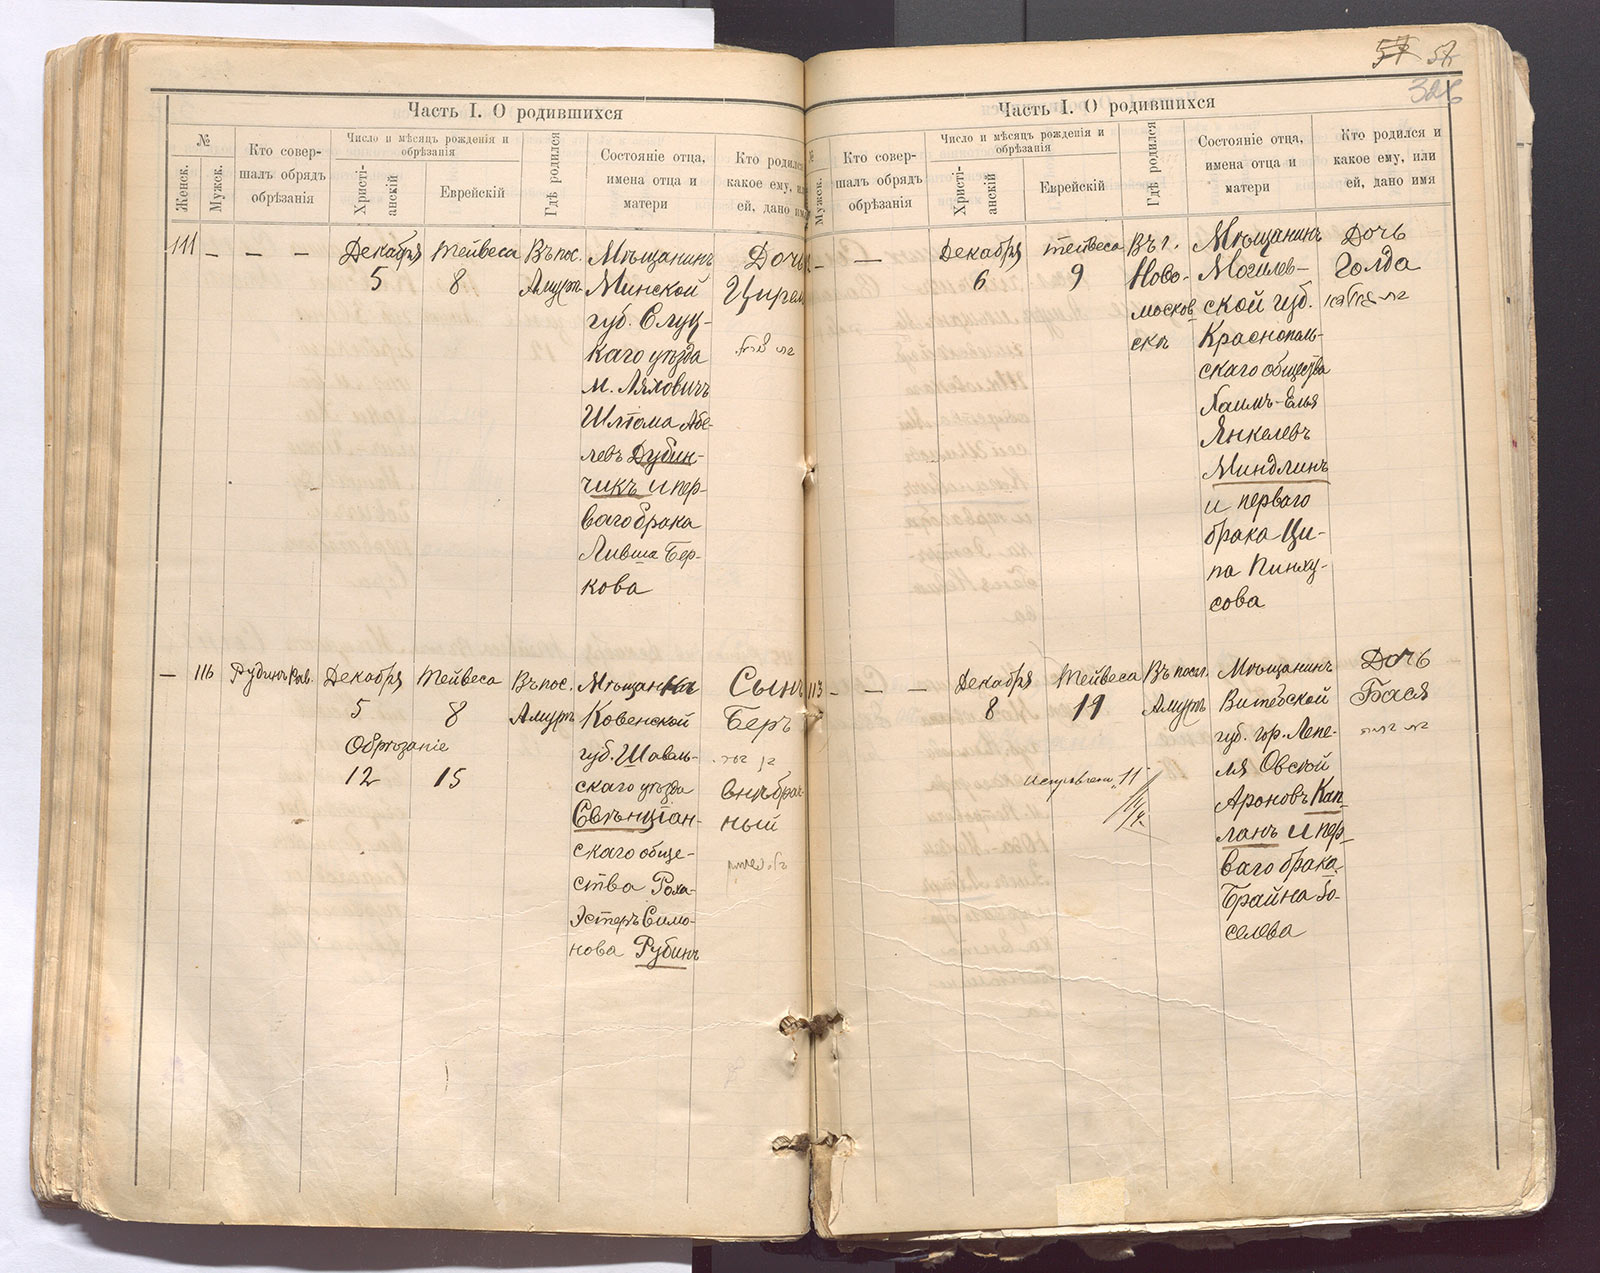 57
326
Часть I. О родившихся
№
Женск.
Мужск.
Кто совер-
шалъ обрядъ
обрѣзанія
Число и мѣсяцъ рожденія и
обрѣзанія
Христі-
анскій
Еврейскій
Гдѣ родился
Состояніе отца,
имена отца и
матери
Кто родился
какое ему, или
ей, дано имя
111 – – –
Декабря
5
Тейвеса
8
Въ пос.
Амуръ
Мѣщанинъ
Минской
губ. Слуц-
каго уѣзда
м. Ляховичъ
Шлема Абе-
левъ Дубин-
чикъ и пер-
ваго брака
Ливша Бер-
кова
Дочь
– 116
Рубинъ Рав.
Декабря
5
Обрѣзаніе
12
Тейвеса
8
15
Въ пос.
Амуръ
Ковенской
губ. Шавель-
скаго уѣзда
скаго обще-
ства Роха-
Эстеръ Симо-
нова Рубинъ
Сынъ
Беръ
внѣбрач-
ный
Часть I. О родившихся
Мужск.
Кто совер-
шалъ обрядъ
обрѣзанія
Число и мѣсяцъ рожденія и
обрѣзанія
Христі-
анскій
Еврейскій
Гдѣ родился
Состояніе отца,
имена отца и
матери
Кто родился и
какое ему, или
ей, дано имя
– –
Декабря
6
Тейвеса
9
Въ г.
Ново-
москов
скъ
Мѣщанинъ
Могилев-
ской губ.
Краснополь-
скаго общества
Хаимъ-Елья
Янкелевъ
Миндлинъ
и перваго
брака Ци-
па Пинху-
сова
Дочь
Голда
113 – – –
Декабря
8
Тейвеса
11
11
Въ посл.
Амуръ
Мѣщанинъ
Витебской
губ. гор. Лепе-
ля Овсей
Ароновъ Кап-
ланъ и пер-
ваго брака
Брайна Іо-
селева
Дочь
Бася